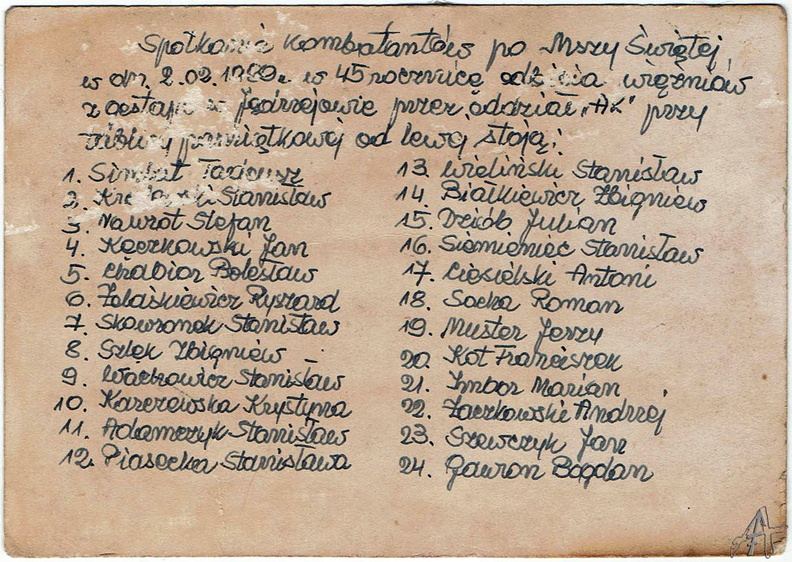 Spotkanie Kombatantów po Mszy Świętej
w dn. 2.02.1990r. w 45 rocznicę odbicia więźniów
z gestapo w Jędrzejowie przez oddział „AK" przy
tablicy pamiątkowej od lewej stoją:
1. Tadeusz
2. Stanisław
3. Nawrot Stefan
4. Kaczkowski Jan
5. Chabior Bolesław
6. Ryszard
7. Skowronek Stanisław
8. Szlęk Zbigniew
9. Wachowicz Stanisław
10. Karczewska Krystyna
11. Adamczyk Stanisław
12. Piasecka Stanisława
13. Wieliński Stanisław
14. Białkiewicz Zbigniew
15. Dziób Julian
16. Siemieniec Stanisław
17. Ciesielski Antoni
18. Socha Roman
19. Muster Jerzy
20. Kot Franciszek
21. Imbor Marian
22. Zaczkowski Andrzej
23. Szewczyk Jan
24. Gawron Bogdan